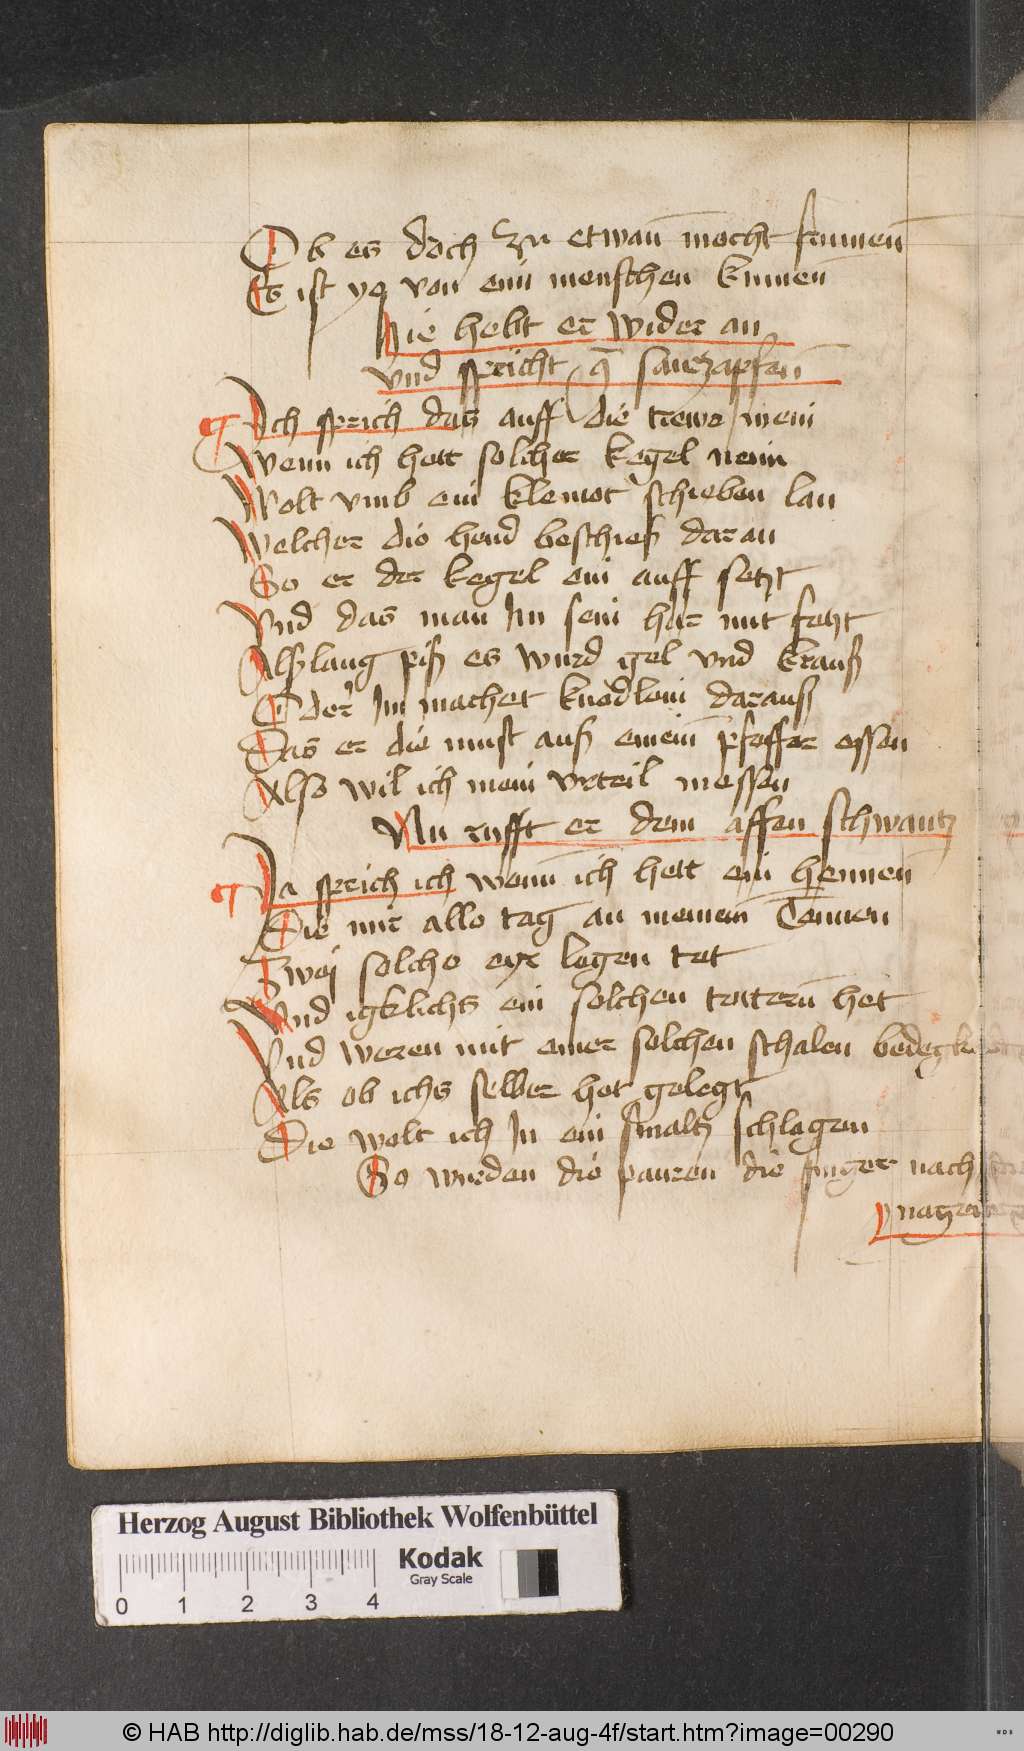 Ob es doch zu etwan mocht frumen
Es ist yo von eim menschen kumen
Hie hebt er wider an
vnd spricht q̄ sauezapfen
Ich sprich das auff die trewe mein
Wenn ich hett solcher kegel neun
Wolt vmb ein klemot schieben lan
Welcher die hend beschieß daran
So er der kegel ein auff setzt
Vnd das man Im sein har mit fetzt
Alßlang piß es wurd gel vnd krauß
Oder Im machet knodlein darauß
Das er die must auß einem pfeffer essen
Also wil ich mein vrteil messen
Nu rufft er dem affen schwantz
Ja sprich ich wenn ich hett ein hennen
Die mir alle tag an meinem Tennen
Zwej solche eyr legen tet
Vnd igklichs ein solchen tottern het
Vnd weren mit einer solchen schalen
Als ob ichs selber het gelegt
Die wolt ich In ein smaltz schlagen
So wurden die pauren die finger nach
Herzog August Bibliothek Wolfenbüttel
Kodak
Gray Scale
0 1 2 3 4
© HAB http://diglib.hab.de/mss/18-12-aug-4f/start.htm?image=00290
WDB